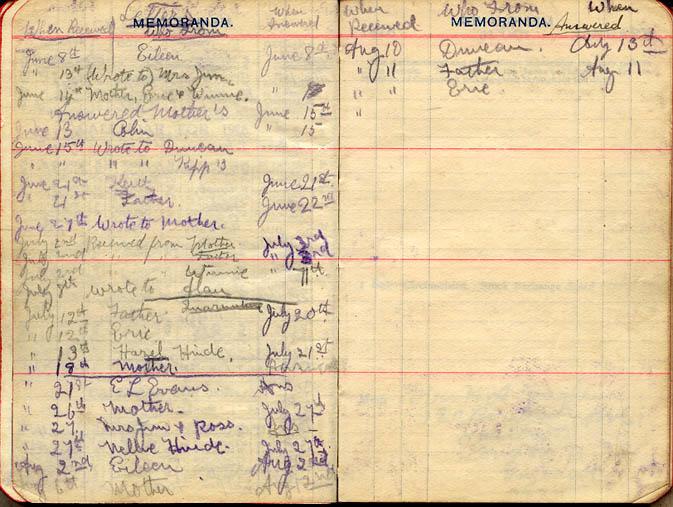 Letters
MEMORANDA.
When Received Who From When Answered
June 8th Eileen June 8th
" 13th Wrote to Mrs Jim.
June 14th Mother, Eric & Winnie. "
Answered Mother's June 15th
June 13 Colin " 15
June 15th Wrote to Duncan
" " " " Kipp's
June 21st Keith June 21st
" 21st Father. June 22nd
June 27th Wrote to Mother.
July 2nd Received from Mother July 3rd
July 2nd " " Father " 3rd
July 2nd Winnie " 11th
July 9th wrote to
July 12th Father. July 20th
" 12th Eric
" 13th Hazel Hinde. July 21st
" 18th Mother.
" 21st E L Evans. Ans
" 26th Mother. July 27th
" 27. Mrs Jim & Ross.
" 27th Nellie Hinde. July 27th
Aug 2nd Eileen Aug 2nd
" 6th Mother Aug 12nd
MEMORANDA.
When Received Who From When Answered
Aug 10 Duncan. July 13th
" 11 Father Aug 11
" " Eric
" "